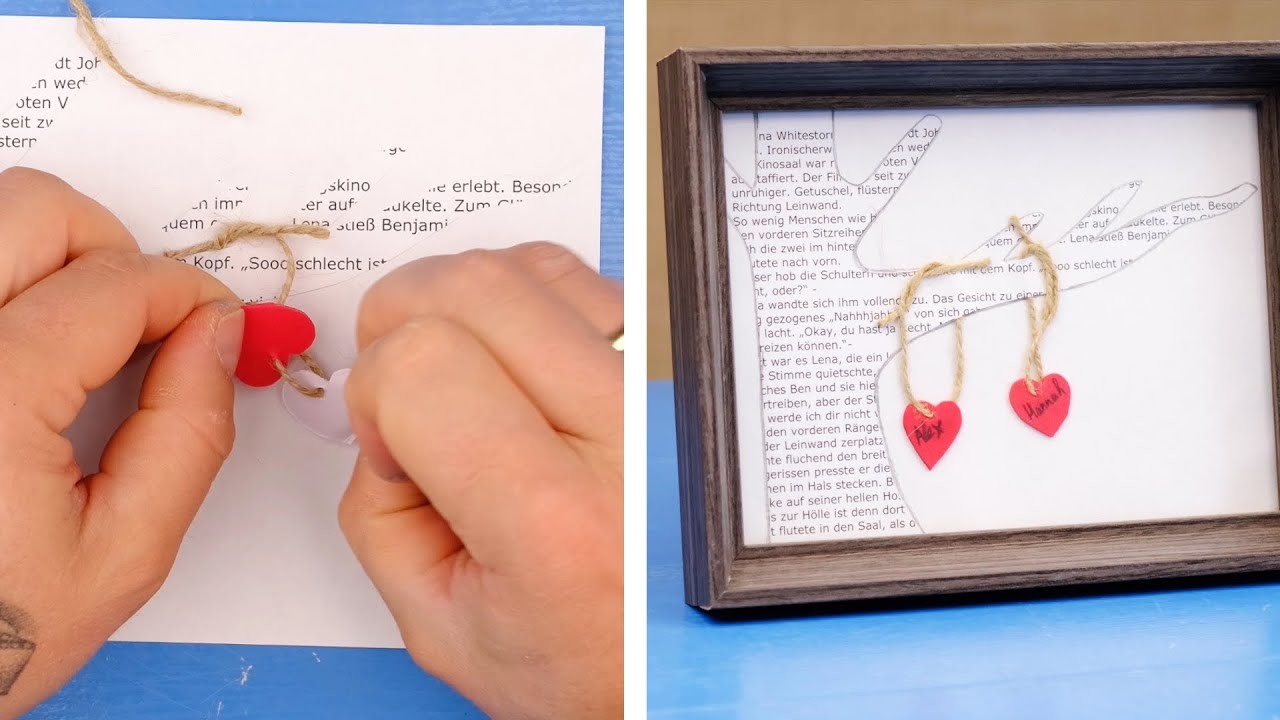 dt Joh
n wed
oten V
seit zw
stern
gskino
ie erlebt. Besond
en imm
ter auf
aukelte. Zum Glü
quem
Lena stieß Benjami
Kopf. „Sooo schlecht ist
na Whitestor
dt Joh
. Ironischerw
en wed
Kinosaal war
oten V
taffiert. Der Fil
seit zv
unruhiger. Getuschel, flüster
Richtung Leinwand.
So wenig Menschen wie
en vorderen Sitzreihe
ch die zwei im hinte
utete nach vorn.
gskino
ie erlebt. Beson
aukelte. Zum Gl
quem
Lena stieß Benjami
ser hob die Schultern und
mit dem Kopf. „Sooo schlecht is
nt, oder?" -
a wandte sich ihm vollend
zu. Das Gesicht zu einer
g gezogenes „Nahhhjahh
von sich
lacht. „Okay, du hast ja
echt.
reizen können." -
t war es Lena, die ein
e Stimme quietschte,
ches Ben und sie hie
rtreiben, aber der St
werde ich dir nicht
den vorderen Ränge
der Leinwand zerplatz
nte fluchend den breit
gerissen presste er die
en im Hals stecken. B
ke auf seiner hellen Ho
s zur Hölle ist denn dort
t flutete in den Saal, als
Alex
Hannah